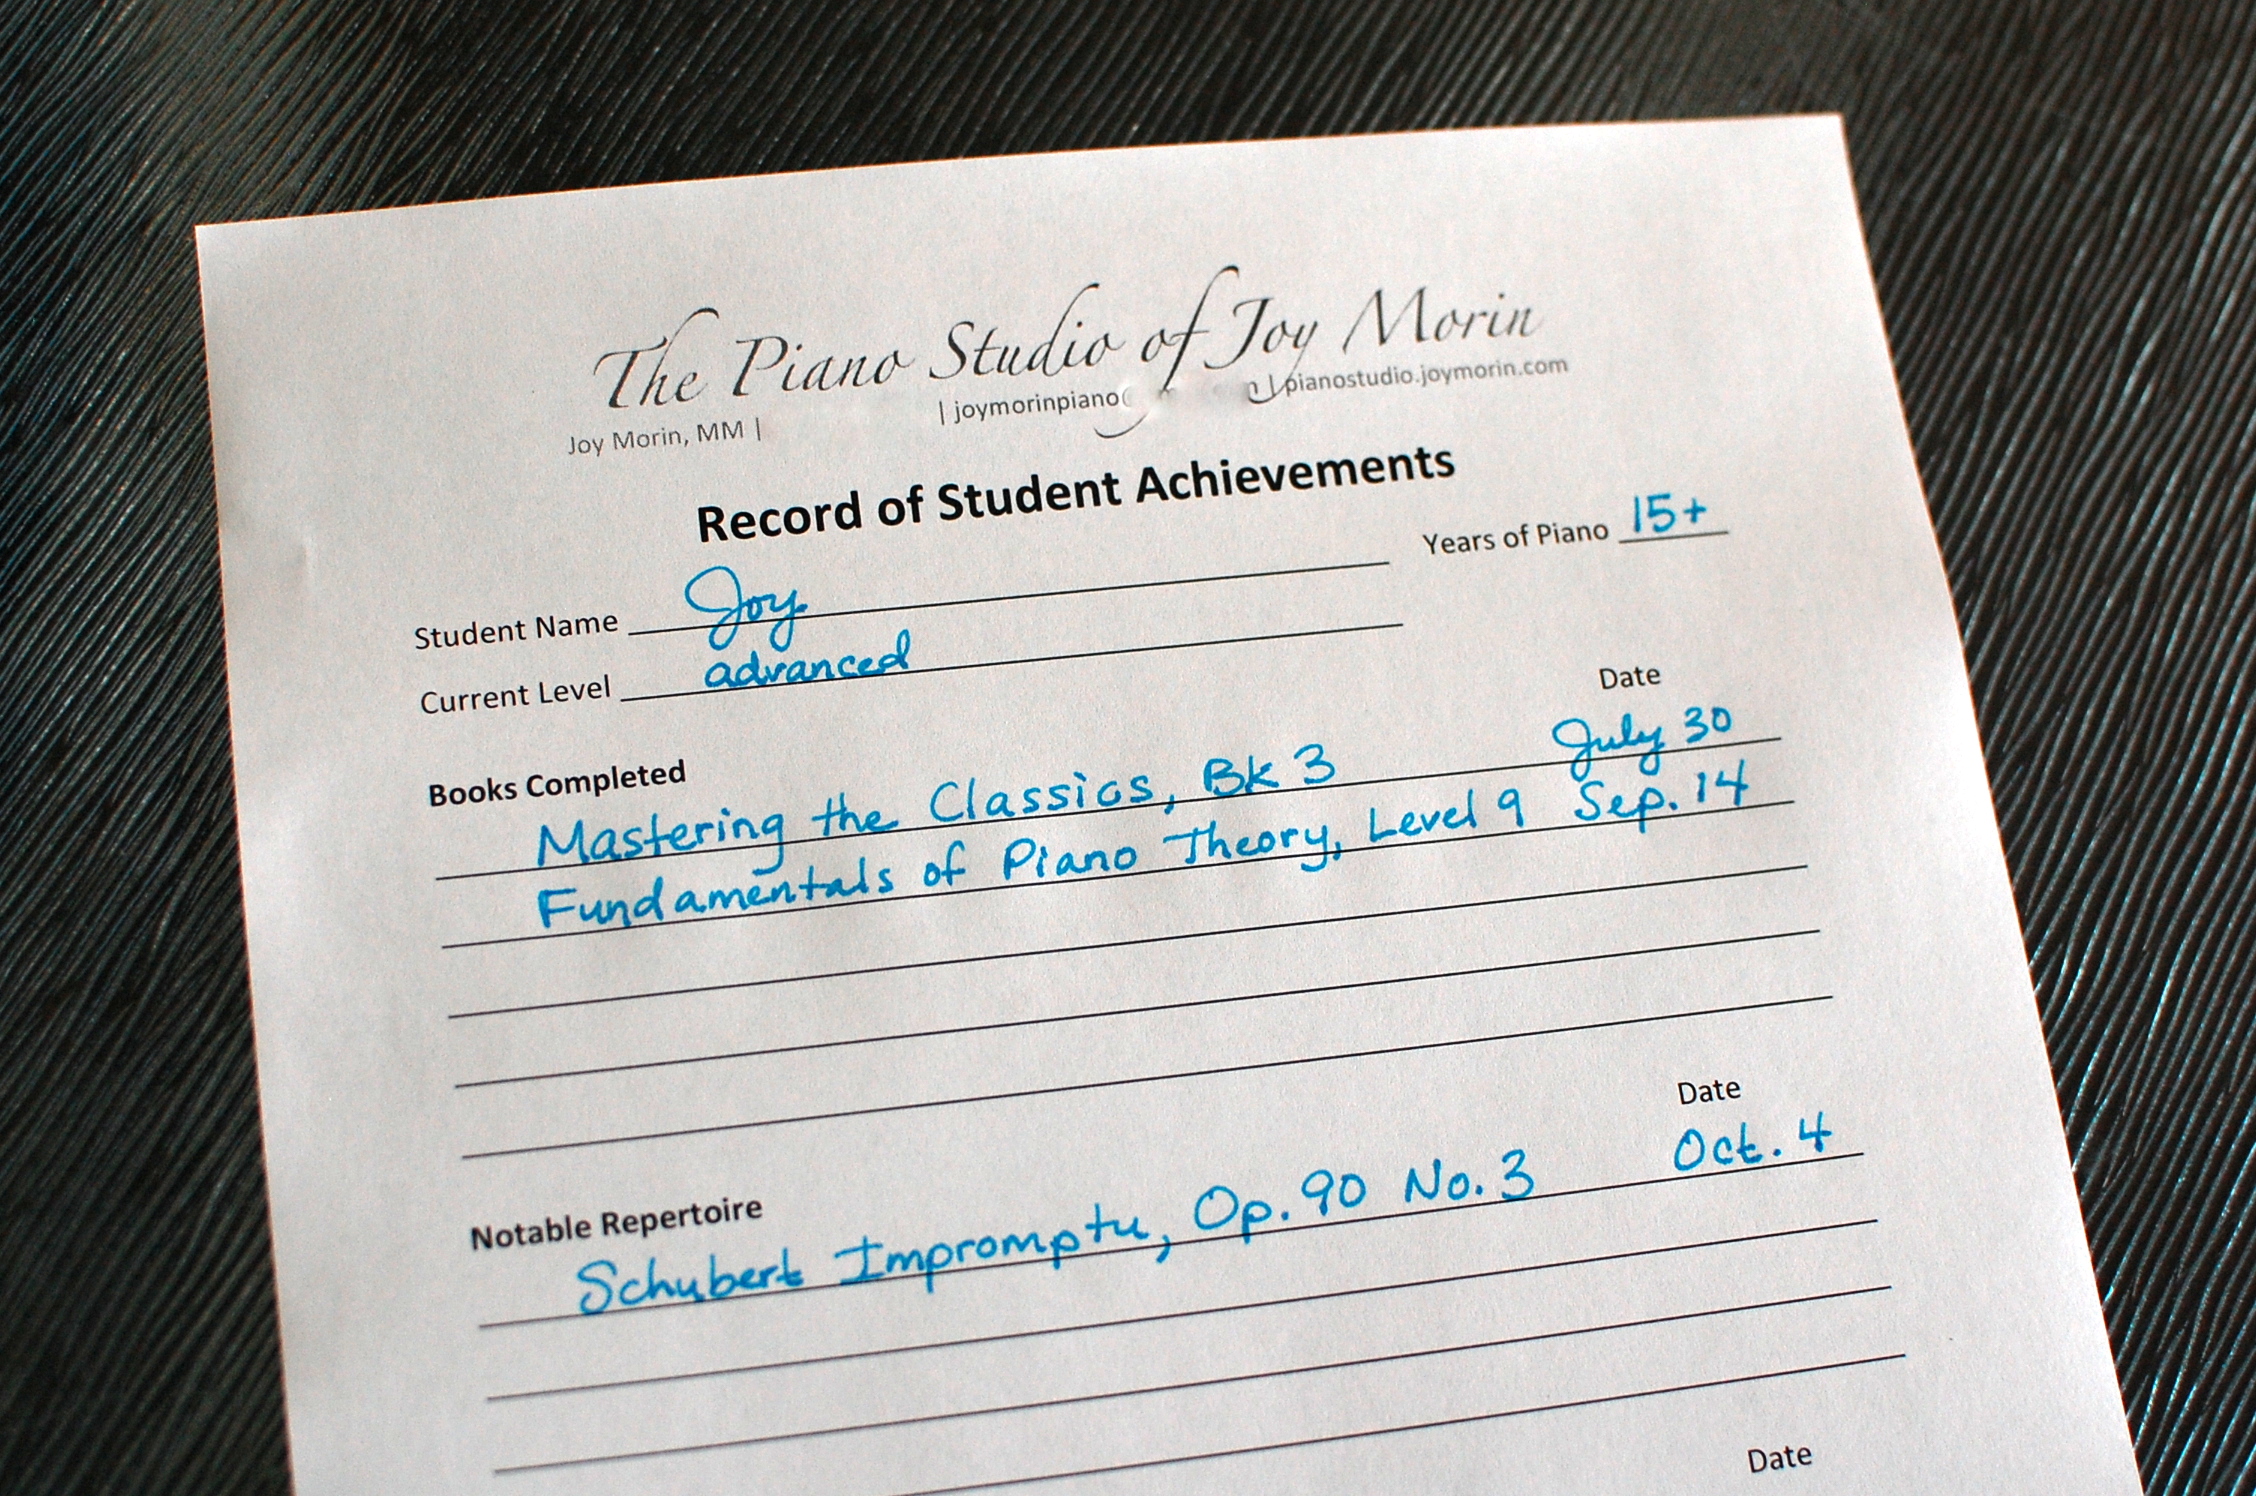 The Piano Studio of Joy Morin
Joy Morin, MM | | joymorinpiano | pianostudio.joymorin.com
Record of Student Achievements
Student Name Joy Years of Piano 15+
Current Level advanced
Books Completed Date
Mastering the Classics, Bk 3 July 30
Fundamentals of Piano Theory, Level 9 Sep. 14
Notable Repertoire Date
Schubert Impromptu, Op. 90 No. 3 Oct. 4
Date